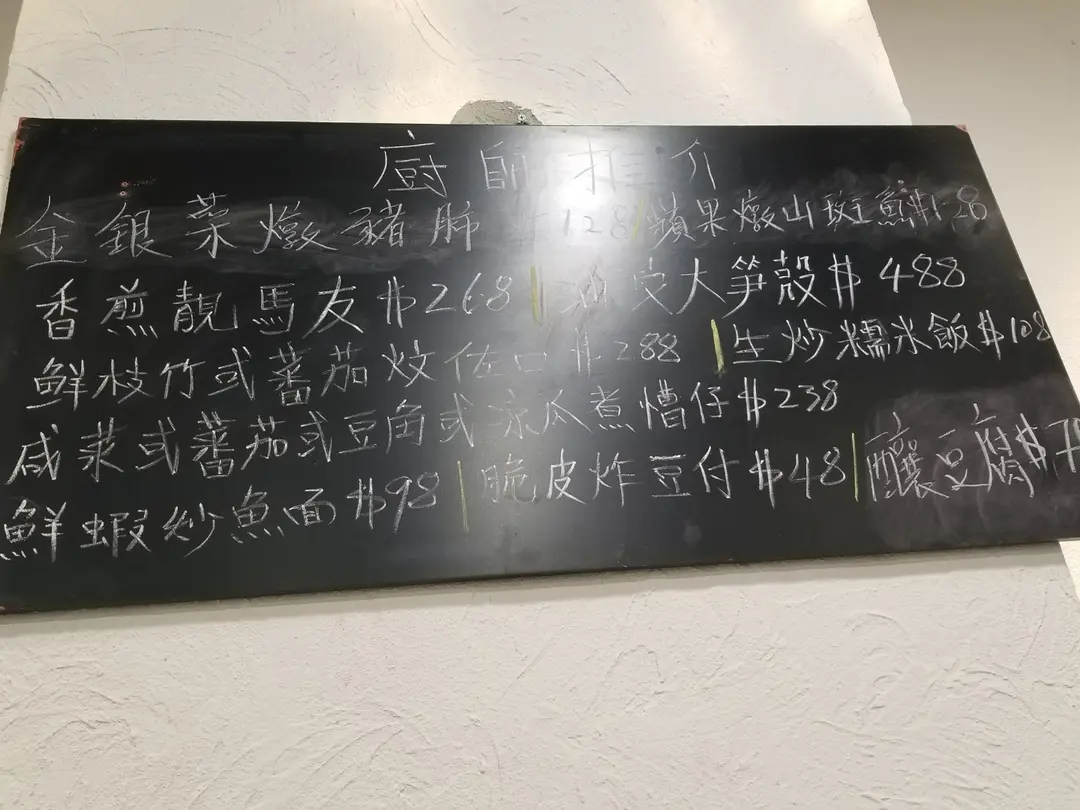 廚師推介
金銀菜燉豬肺 $128 / 蘋果燉山斑魚 $128
香煎靚馬友 $268 | 油浸大笋殼 $488
鮮枝竹或蕃茄炆佐口 $288 | 生炒糯米飯 $108
咸菜或蕃茄或豆角或凉瓜煮慒仔 $238
鮮蝦炒魚面 $98 | 脆皮炸豆付 $48 | 釀豆腐